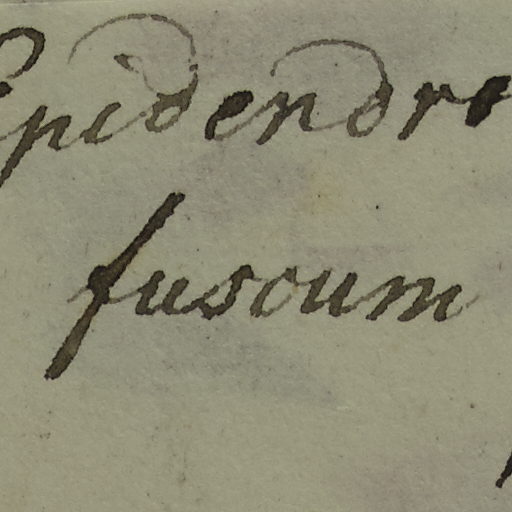 Epidendro
fuscum